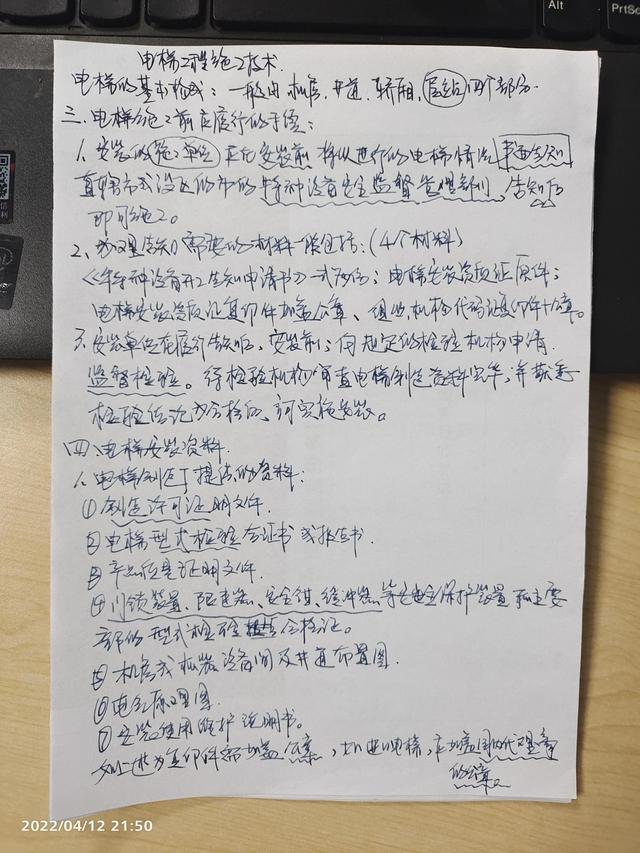 电梯工程施工技术.
电梯的基本构成：一般由机房，井道，轿厢，层站四个部分.
三.电梯施工前应履行的手续：
1.安装的施工单位应在安装前将拟进行的电梯情况书面告知
直辖市或设区的市的特种设备安全监督管理部门，告知后
即可施工。
2、办理告知需要的材料一般包括：(4个材料)
《特种设备开工告知申请书》一式两份；电梯安装资质证原件；
电梯安装资质证复印件加盖公章、组织机构代码证复印件+公章。
3.安装单位在履行告知后，安装前，向规定的检验机构申请
监督检验。待检验机构审查电梯制造资料完毕，并获悉
检验结论为合格后，可实施安装。
四、电梯安装资料.
1.电梯制造厂提供的资料：
①制造许可证明文件.
②电梯型式检验合证书或报告书.
③产品质量证明文件.
④门锁装置、限速器、安全钳、缓冲器等安全保护装置和主要
部件的型式检验合格证。
⑤机房或机器设备间及井道布置图.
⑥电气原理图.
⑦安装使用维护说明书。
如上述为复印件需加盖公章，如进口电梯，应加盖国内代理商
的公章。
Alt
PrtSc
2022/04/12 21:50